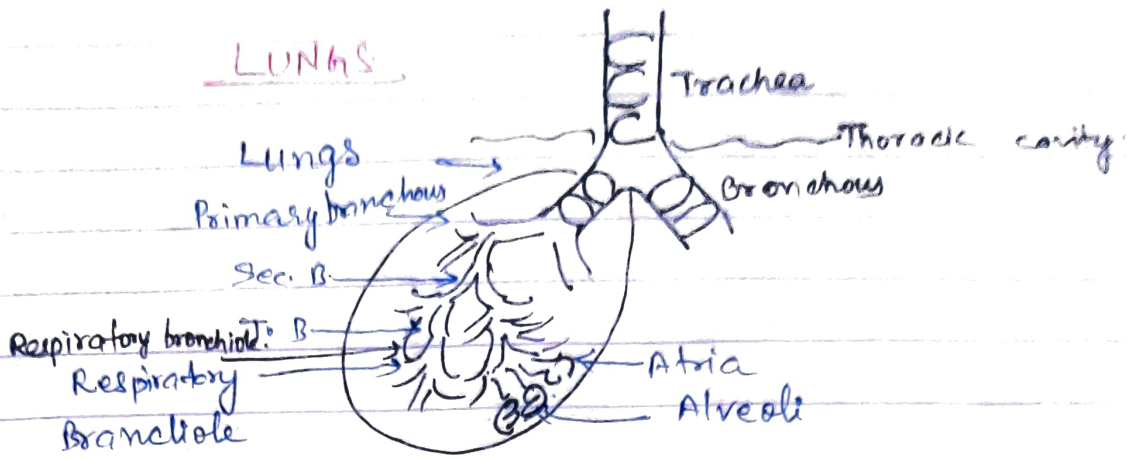 LUNGS
Trachea
Thoracic cavity.
Lungs
Bronchous
Primary branchous
Sec. B.
Respiratory bronchiole
T. B
Respiratory
Branchiole
Atria
Alveoli